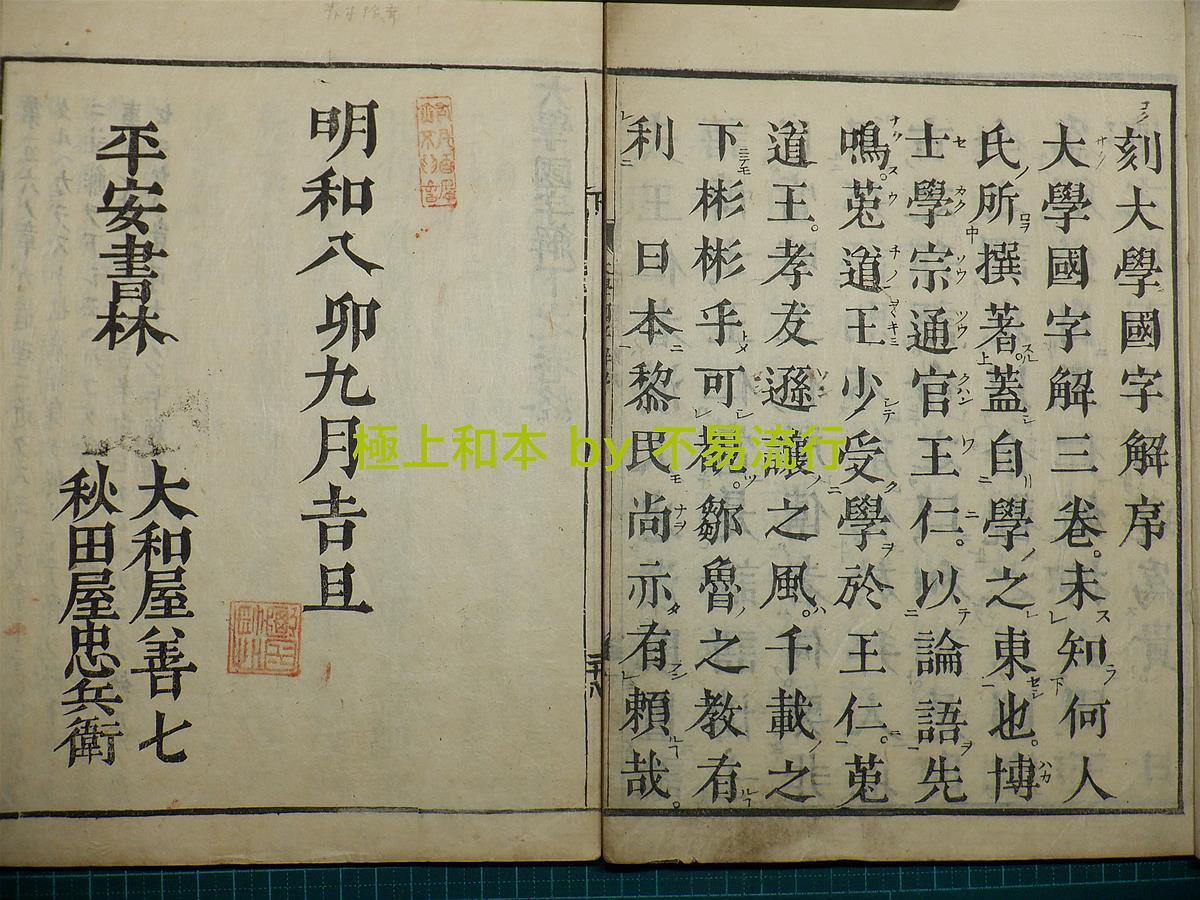 刻大學國字解序
大學國字解三卷。未知何人
氏所撰著。蓋自學之東也。博
士學宗通官王仁。以論語先
鳴。菟道王少受學於王仁。菟
道王。孝友遜讓之風。千載之
下彬彬乎可觀。鄒魯之教有
利日本黎民尚亦有賴哉。
明和八卯九月吉旦
平安書林
大和屋善七
秋田屋忠兵衛
極上和本 by 不易流行